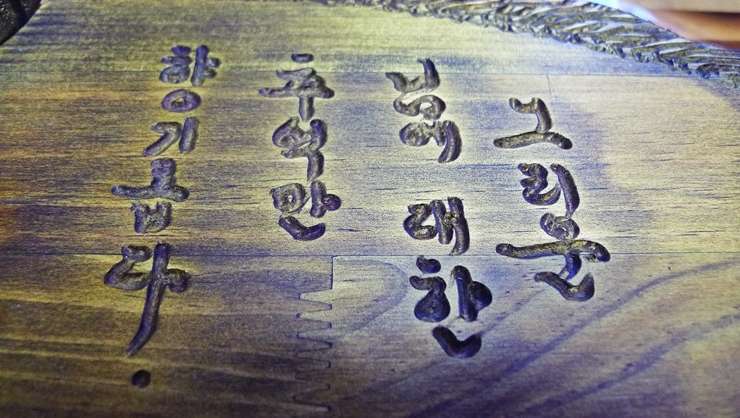 그리운
님에 대한
추억만
향기롭다.